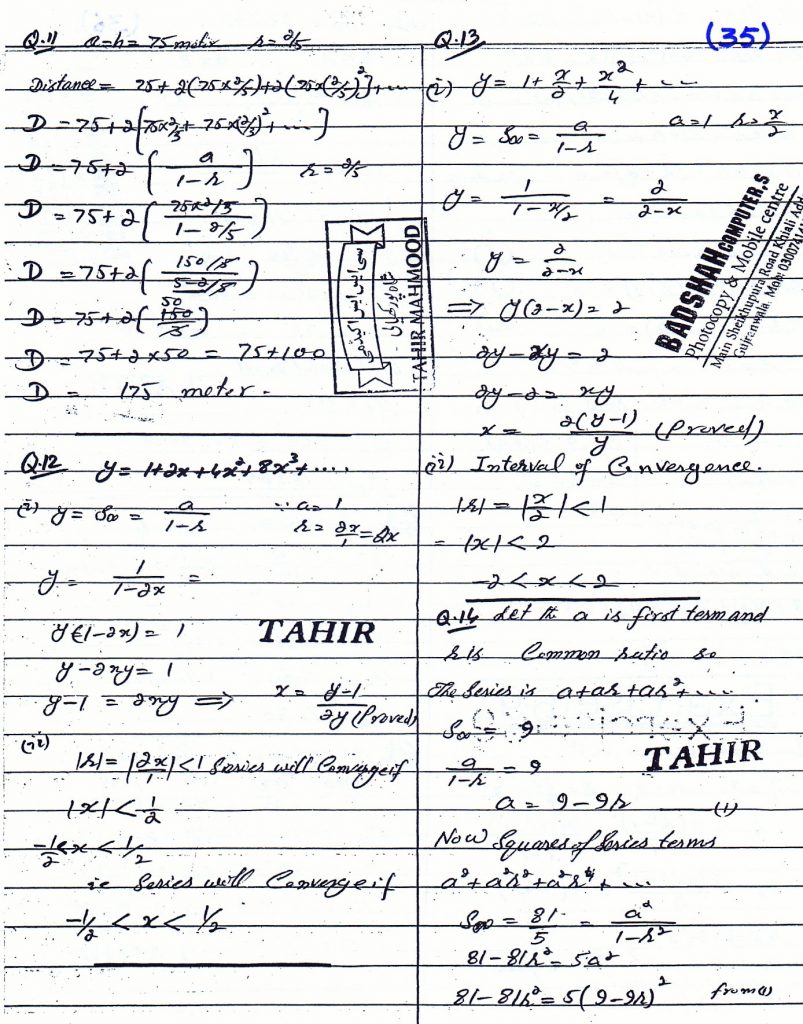 (35)
Q.11 a=h= 75 meter r= 2/5
Distance = 75+2(75×2/5)+2(75×(2/5)²)+...
D = 75+2[75×2/5 + 75×(2/5)²+....]
D = 75+2 ( a / 1-r ) r = 2/5
D = 75+2 ( 75×2/5 / 1-2/5 )
D = 75+2 ( 150/5 / 5-2/5 )
D = 75+2 ( 150 / 3 ) 50
D = 75+2×50 = 75+100
D = 175 meter.
Q.12 y= 1+2x+4x²+8x³+....
(i) y= S∞ = a / 1-r ∵ a= 1
r= 2x/1 = 2x
y= 1 / 1-2x =
y(1-2x)= 1
y-2xy= 1
y-1 = 2xy ⟹ x= y-1 / 2y (Proved)
(ii)
|r|= |2x/1| <1 Series will Converge if
|x| < 1/2
-1/2 < x < 1/2
ie Series will Converge if
-1/2 < x < 1/2
Q.13
(i) y= 1+ x/2 + x²/4 + ...
y= S∞= a / 1-r a=1 r= x/2
y= 1 / 1-x/2 = 2 / 2-x
y = 2 / 2-x
⟹ y(2-x)= 2
2y-xy = 2
2y-2= xy
x = 2(y-1) / y (Proved)
(ii) Interval of Convergence.
|r| = |x/2| < 1
= |x| < 2
-2 < x < 2
Q.14 Let the a is first term and
r is Common ratio so
The Series is a+ar+ar²+....
S∞ = 9
a / 1-r = 9
a = 9-9r (1)
Now Squares of Series terms
a²+a²r²+a²r⁴+....
S∞ = 81/5 = a² / 1-r²
81-81r²= 5a²
81-81r²= 5(9-9r)² from (1)
سی ایس ایس اکیڈمی
TAHIR MAHMOOD
BADSHAH COMPUTER,S
Photocopy & Mobile centre
Main Sheikhupura Road Khiali Adda
Gujranwala.
TAHIR
TAHIR